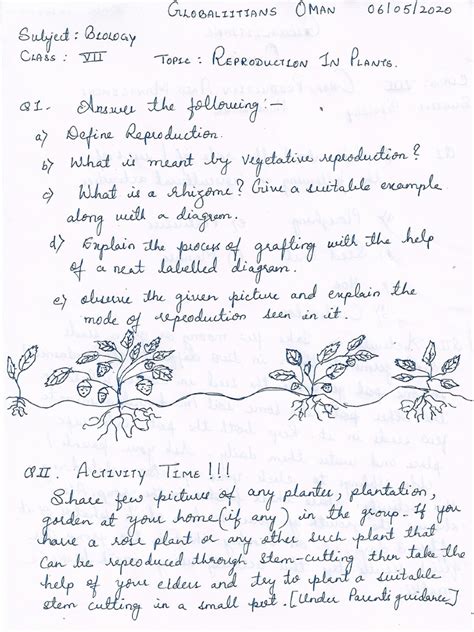 GLOBALIITIANS OMAN 06/05/2020
Subject: BIOLOGY
CLASS : VII TOPIC : REPRODUCTION IN PLANTS.
QI. Answer the following:-
a) Define Reproduction.
b) What is meant by vegetative reproduction?
c) What is a rhizome? Give a suitable example
along with a diagram.
d) Explain the process of grafting with the help
of a neat labelled diagram.
e) observe the given picture and explain the
mode of reproduction seen in it.
QII. ACTIVITY TIME !!!
Share few picture of any plants, plantation,
garden at your home (if any) in the group. If you
have a rose plant or any other such plant that
can be reproduced through stem-cutting then take the
help of your elders and try to plant a suitable
stem cutting in a small pot. [Under Parents guidance]